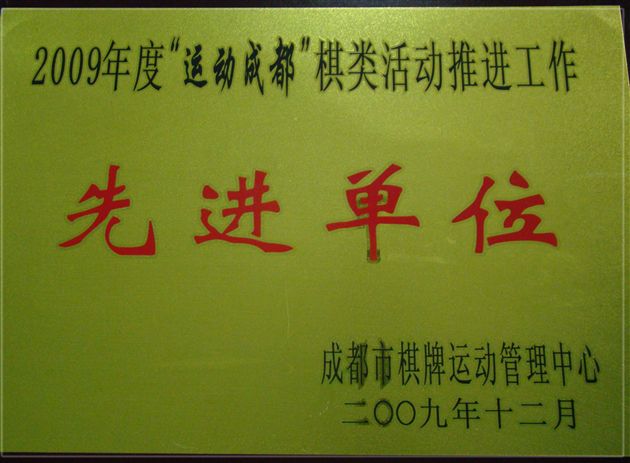 2009年度“运动成都”棋类活动推进工作
先进单位
成都市棋牌运动管理中心
二〇〇九年十二月